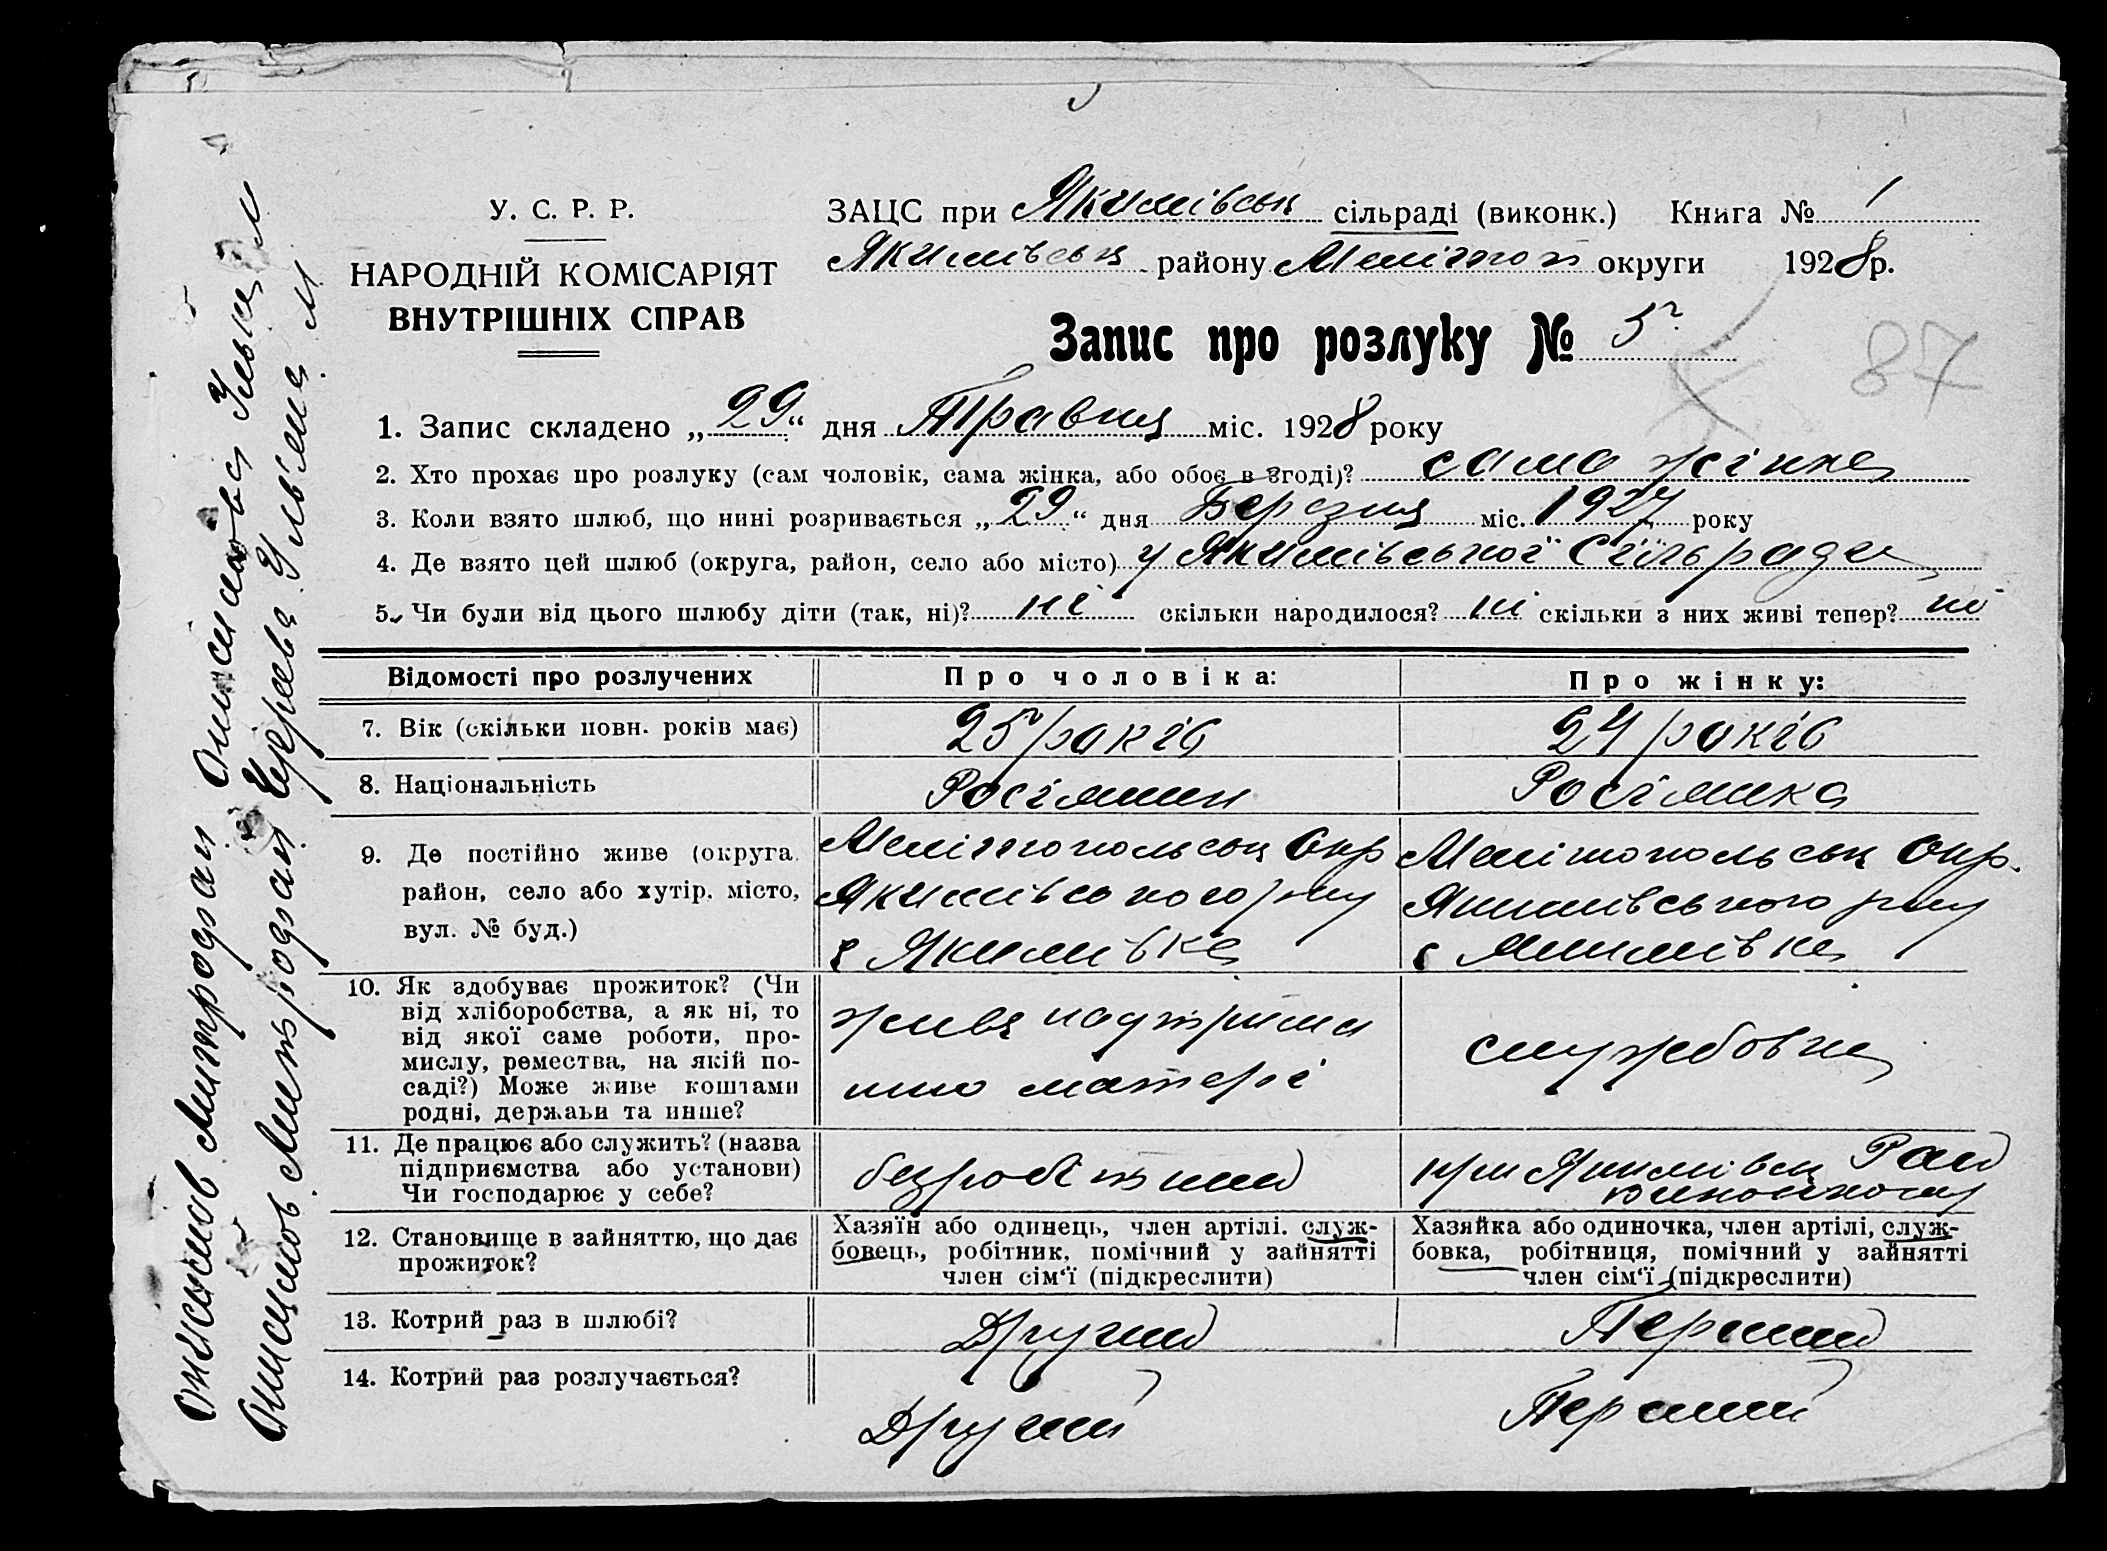 У. С. Р. Р.
НАРОДНІЙ КОМІСАРІЯТ
ВНУТРІШНІХ СПРАВ
ЗАЦС при Якимівськ сільраді (виконк.) Книга № 1
Якимівськ району Меліт округи 1928 р.
Запис про розлуку № 5
87
1. Запис складено „29“ дня Травня міс. 1928 року
2. Хто прохає про розлуку (сам чоловік, сама жінка, або обоє в згоді)? сама жінка
3. Коли взято шлюб, що нині розривається „29“ дня Березня міс. 1927 року
4. Де взято цей шлюб (округа, район, село або місто) у Якимівської Сільради
5. Чи були від цього шлюбу діти (так, ні)? ні скільки народилося? ні скільки з них живі тепер? ні
Відомості про розлучених Про чоловіка: Про жінку:
7. Вік (скільки повн. років має) 25 років 24 років
8. Національність Росіянин Росіянка
9. Де постійно живе (округа, район, село або хутір, місто, вул. № буд.)
Мелітопольськ Окр
Якимівського р-ну
с Якимівка
Мелітопольськ Окр.
Якимівського р-ну
с Якимівка
10. Як здобуває прожиток? (Чи
від хліборобства, а як ні, то
від якої саме роботи, про-
мислу, ремества, на якій по-
саді?) Може живе коштами
родні, держави та инше?
матері
службовка
11. Де працює або служить? (назва
підприємства або установи)
Чи господарює у себе?
безробітний
при Якимівськ Рай
12. Становище в зайняттю, що дає
прожиток?
Хазяїн або одинець, член артілі, служ-
бовець, робітник, помічний у зайнятті
член сім'ї (підкреслити)
Хазяйка або одиночка, член артілі, служ-
бовка, робітниця, помічний у зайнятті
член сім'ї (підкреслити)
13. Котрий раз в шлюбі? Другий Перший
14. Котрий раз розлучається? Другий Перший
Онисимов Митрофан Онисимова Ульяна М
Онисимов Митрофан Ульяна М